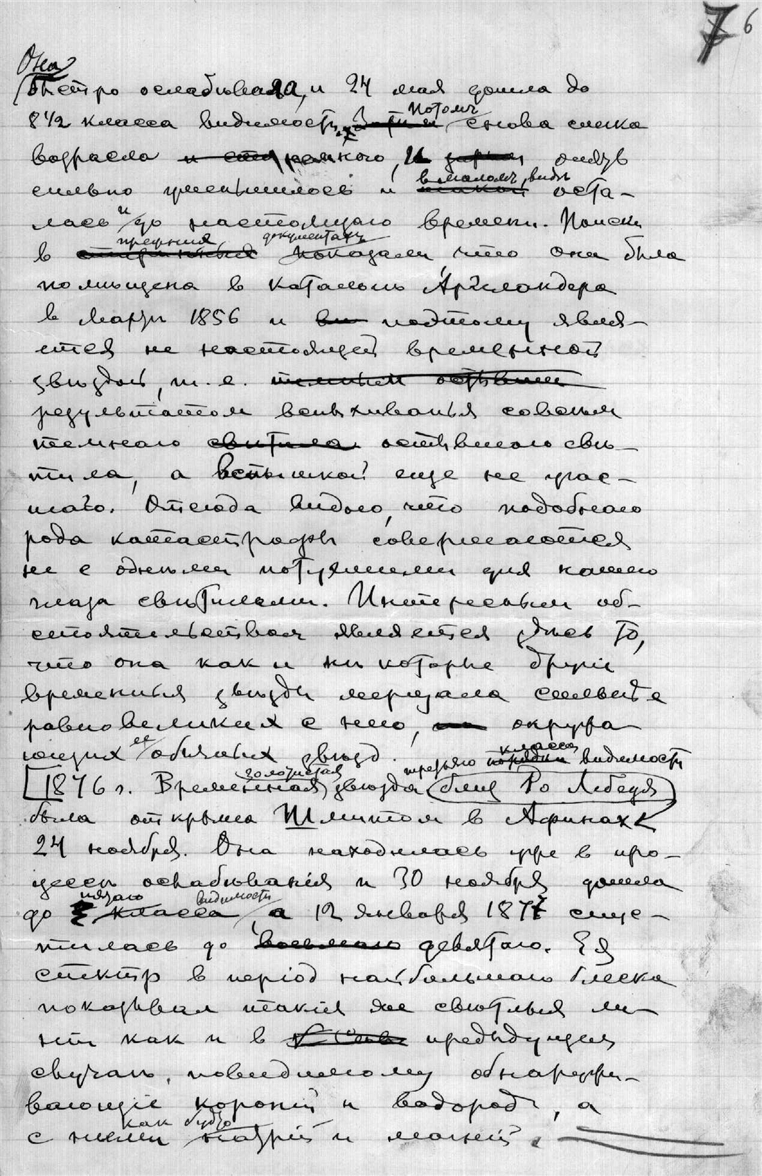 7 6
Она
быстро ослабѣвала, и 24 мая дошла до
8 1/2 класса видимости, потомъ снова слегка
возрасла, и опять
сильно уменьшилось и в маломъ видѣ оста-
лась и до настоящаго времени. Поиски
в прежних документах показали, что она была
помѣщена в каталогѣ Аргеландера
в Мартѣ 1856 и поэтому явля-
ется не настоящей временной
звѣздой, т. е.
результатом вспыхиванья совсѣм
темнаго остывшаго свѣ-
тила, а вспышкой еще не угас-
шаго. Отсюда видно, что подобнаго
рода катастрофы совершаются
не с одними потухшими для нашего
глаза свѣтилами. Интересным об-
стоятельством является здѣсь то,
что она как и нѣкоторые другіе
временныя звѣзды мерцала сильнѣе
равновеликих с нею, окружа-
ющих ее обычных звѣзд.
1876 г. Временная золотистая звѣзда третьяго класса видимости близ Ро Лебедя
была открыта Шмитом в Афинах
24 ноября. Она находилась уже в про-
цессѣ ослабѣванія и 30 ноября дошла
до пятаго класса видимости, а 12 января 1877 спус-
тилась до девятаго. Ея
спектр в період наибольшаго блеска
показывал такія же свѣтлыя ли-
ніи как и в предыдущем
случаѣ, повидимому обнаружи-
вающіе короній и водород, а
с ними как будто натрій и магній.